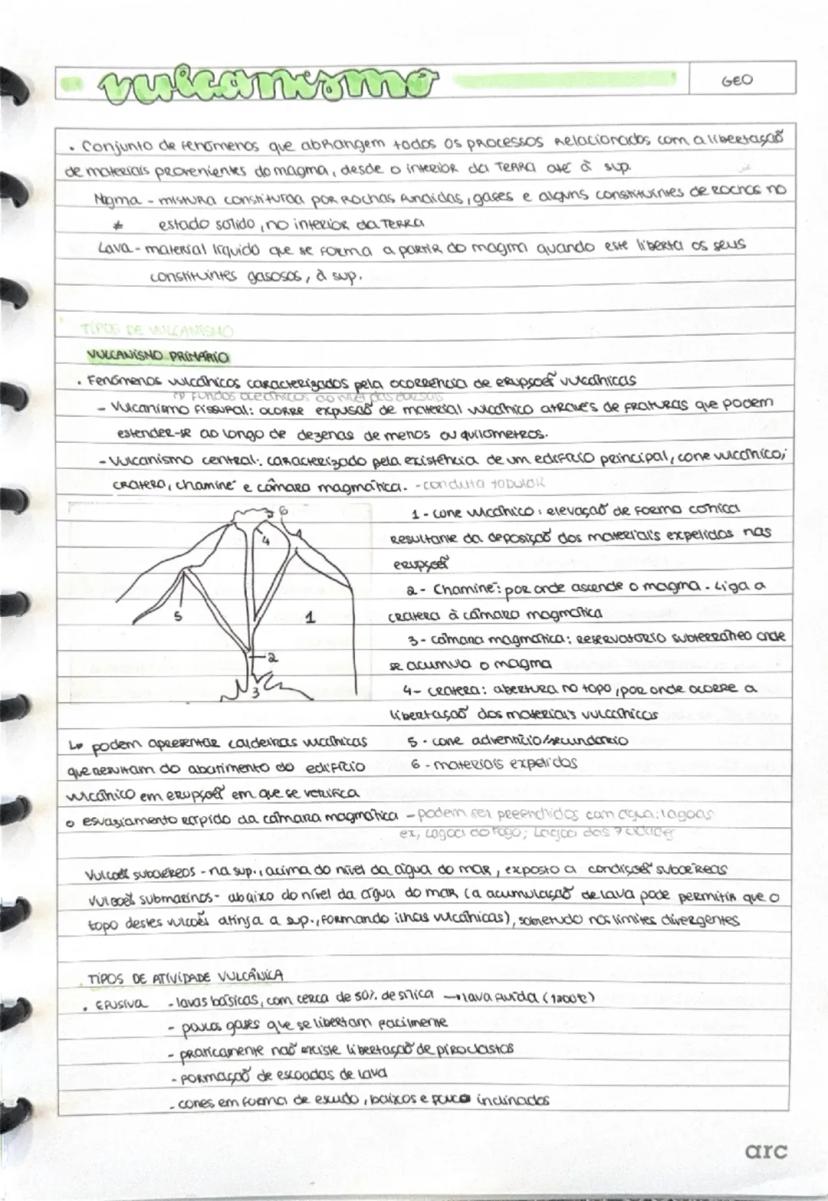 vulcanismo
GEO
. Conjunto de fenómenos que abrangem todos os processos relacionados com a libertação
de materiais provenientes do magma, desde o interior da Terra até à sup.
Magma - mistura constituída por rochas fundidas, gases e alguns constituintes de rochas no
* estado sólido, no interior da Terra
Lava - material líquido que se forma a partir do magma quando este liberta os seus
constituintes gasosos, à sup.
TIPOS DE VULCANISMO
VULCANISMO PRIMÁRIO
. Fenómenos vulcânicos caracterizados pela ocorrência de erupções vulcânicas
fundos oceânicos ao nível das dorsais
- Vulcanismo fissural: ocorre expulsão de material vulcânico através de fraturas que podem
estender-se ao longo de dezenas de menos ou quilómetros.
- Vulcanismo central: caracterizado pela existência de um edifício principal, cone vulcânico;
cratera, chaminé e câmara magmática. - conduta tubular
6
4
5
1
2
3
1 - cone vulcânico: elevação de forma cónica
resultante da deposição dos materiais expelidos nas
erupções
2 - Chaminé: por onde ascende o magma. Liga a
cratera à câmara magmática
3 - câmara magmática: reservatório subterrâneo onde
se acumula o magma
4 - cratera: abertura no topo, por onde ocorre a
libertação dos materiais vulcânicos
5 - cone adventício/secundário
6 - materiais expelidos
↳ podem apresentar caldeiras vulcânicas
que resultam do abatimento do edifício
vulcânico em erupções em que se verifica
o esvaziamento rápido da câmara magmática - podem ser preenchidos com água: lagoas
ex, Lagoa do Fogo; Lagoa das 7 cidades
Vulcões subaéreos - na sup., acima do nível da água do mar, exposto a condições subaéreas
Vulcões submarinos - abaixo do nível da água do mar (a acumulação de lava pode permitir que o
topo destes vulcões atinja a sup., formando ilhas vulcânicas), sobretudo nos limites divergentes
TIPOS DE ATIVIDADE VULCÂNICA
. Efusiva - lavas básicas, com cerca de 50% de sílica → lava fluida (1200ºC)
- poucos gases que se libertam facilmente
- praticamente não existe libertação de piroclastos
- formação de escoadas de lava
- cones em forma de escudo, baixos e pouco inclinados
arc